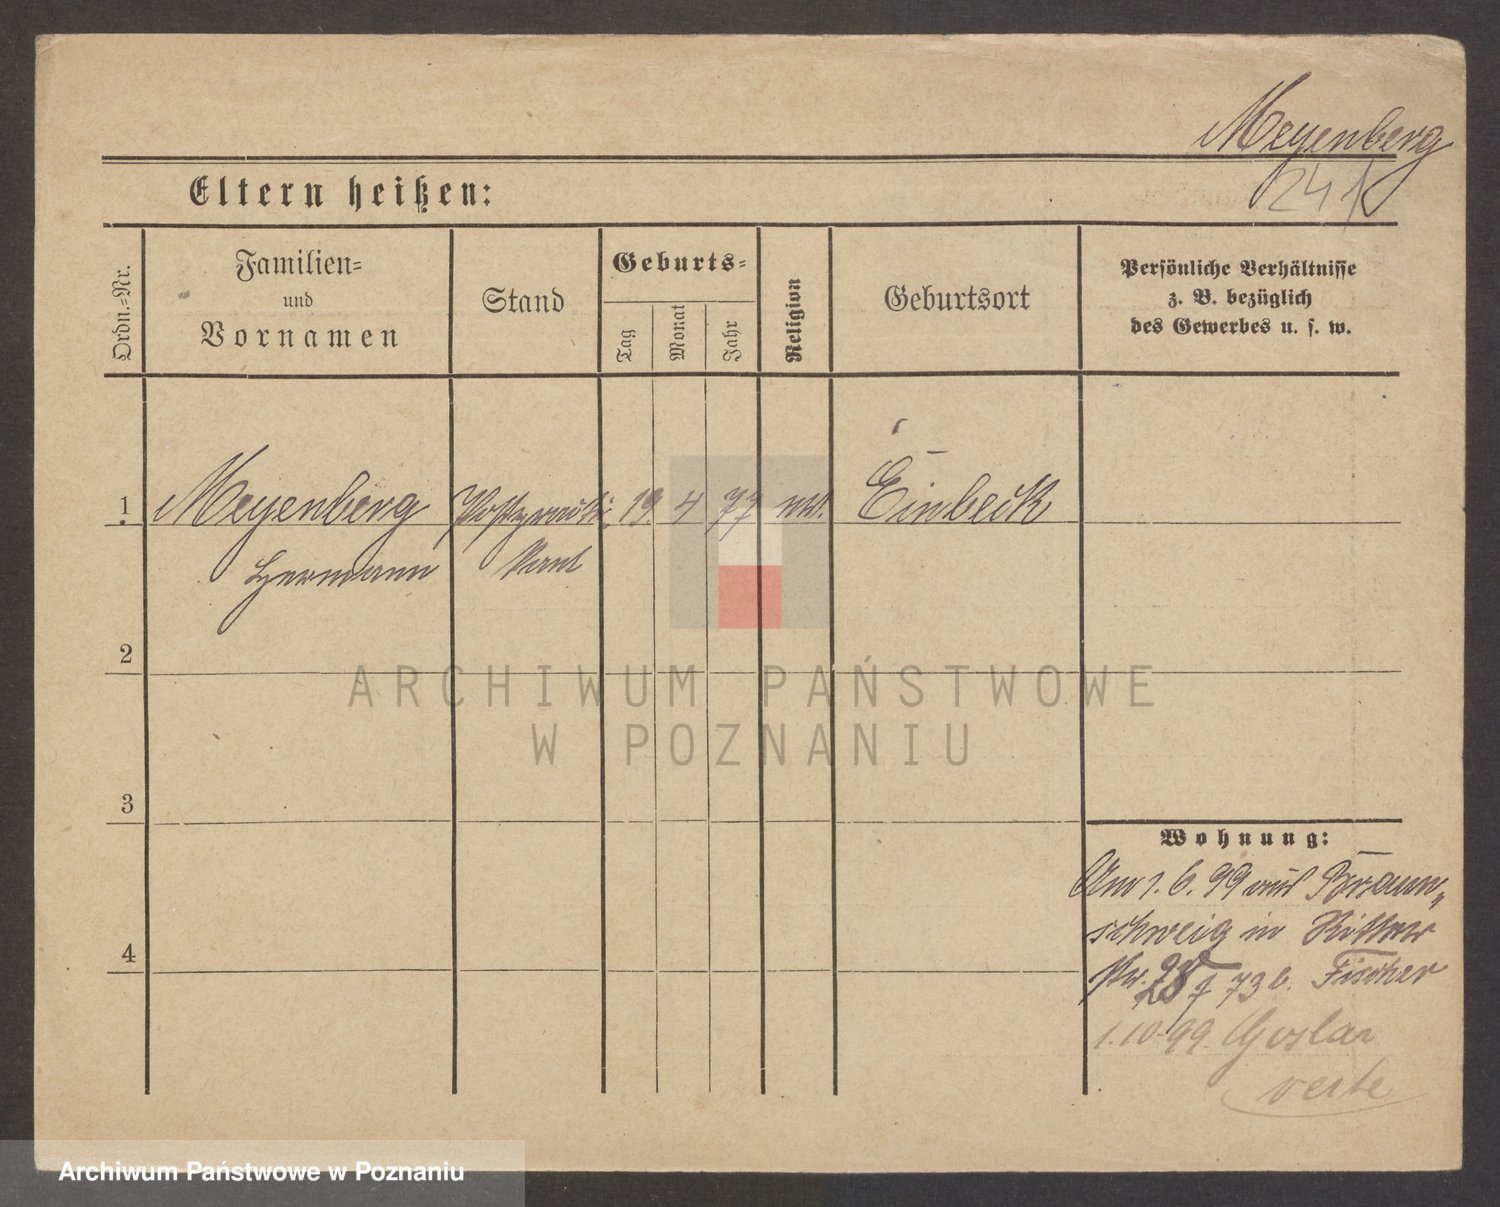 Meyenberg
241
Eltern heißen:
Ordn.-Nr.
Familien-
und
Vornamen
Stand
Geburts-
Tag
Monat
Jahr
Religion
Geburtsort
Persönliche Verhältnisse
z. B. bezüglich
des Gewerbes u. s. w.
1 Meyenberg 19 4 77 Einbeck
Hermann
2
ARCHIWUM PAŃSTWOWE
W POZNANIU
3
Wohnung:
Am 1.6.99 aus Braun-
schweig in Ritter
73 b. Fischer
4
1.10.99. Goslar
verte
Archiwum Państwowe w Poznaniu